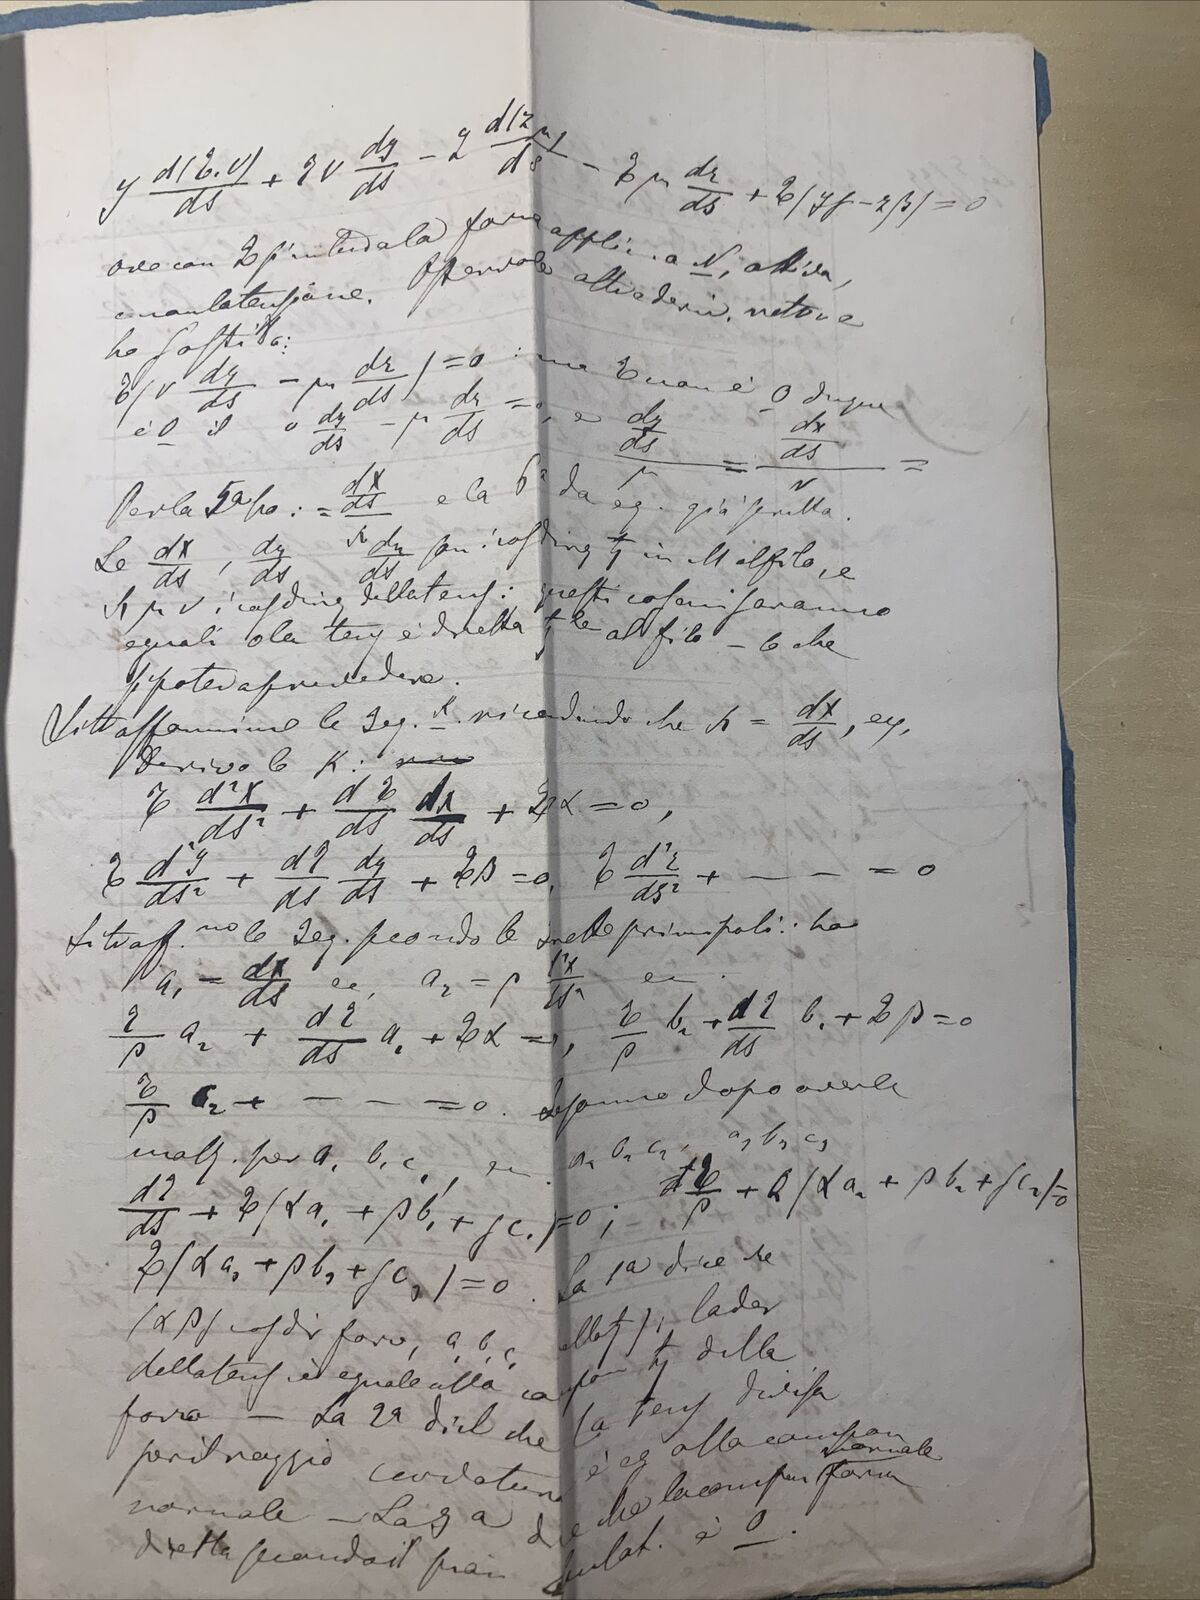 y d(T.ν)/ds + Tν dy/ds − z d(Tμ)/ds − Tμ dz/ds + T(yγ − zβ) = 0
ove con T s'intenda la forza applic. a N, attiva,
e non la tensione.
ho sostit.:
T(ν dy/ds − μ dz/ds) = 0 : ma T non è 0 dunque
è 0 il ν dy/ds − μ dz/ds = 0, e dy/ds / μ = dx/ds / ν =
Per la 5ª ho : = dx/ds / λ e la 6ª da eq. già scritta.
Le dx/ds, dy/ds, dz/ds son i cos. direz. tg in M al filo, e
λ μ ν i cos. direz. della tens: questi coseni saranno
eguali o la tens è diretta tgle al filo − lo che
si poteva prevedere.
le 3 eq. K. ricordando che λ = dx/ds, ec,
Derivo le K:
T d²x/ds² + dT/ds dx/ds + Tα = 0,
T d²y/ds² + dT/ds dy/ds + Tβ = 0, T d²z/ds² + — — = 0
le 3 eq. secondo le rette principali: ho
a₁ = dx/ds ec, a₂ = ρ d²x/ds² ec.
T/ρ a₂ + dT/ds a₁ + Tα = 0, T/ρ b₂ + dT/ds b₁ + Tβ = 0
T/ρ c₂ + — — — = 0. dopo averle
molt. per a₁ b₁ c₁, ec a₂ b₂ c₂, a₃ b₃ c₃
dT/ds + T(αa₁ + βb₁ + γc₁) = 0 ; T/ρ + T(αa₂ + βb₂ + γc₂) = 0
T(αa₃ + βb₃ + γc₃) = 0. La 1ª dice che
(α β) cos dir forza, a₁ b₁ c₁ della tg), la der
della tens è eguale alla compon tg della
forza — La 2ª dice che la tens divisa
per il raggio curvatura è eg alla compon
normale — La 3ª dice che la compon normale forza
diretta secondo il piano è 0.